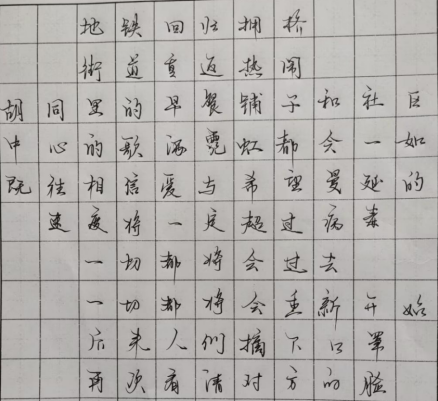 地铁回归拥挤
街道重返热闹
胡同里的早餐铺子和社区
中心的歌海霓虹都会一如
既往相信爱与希望蔓延的
速度将一定超过病毒
一切都将会过去
一切都将会重新开始
后来人们摘下口罩
再次看清对方的脸